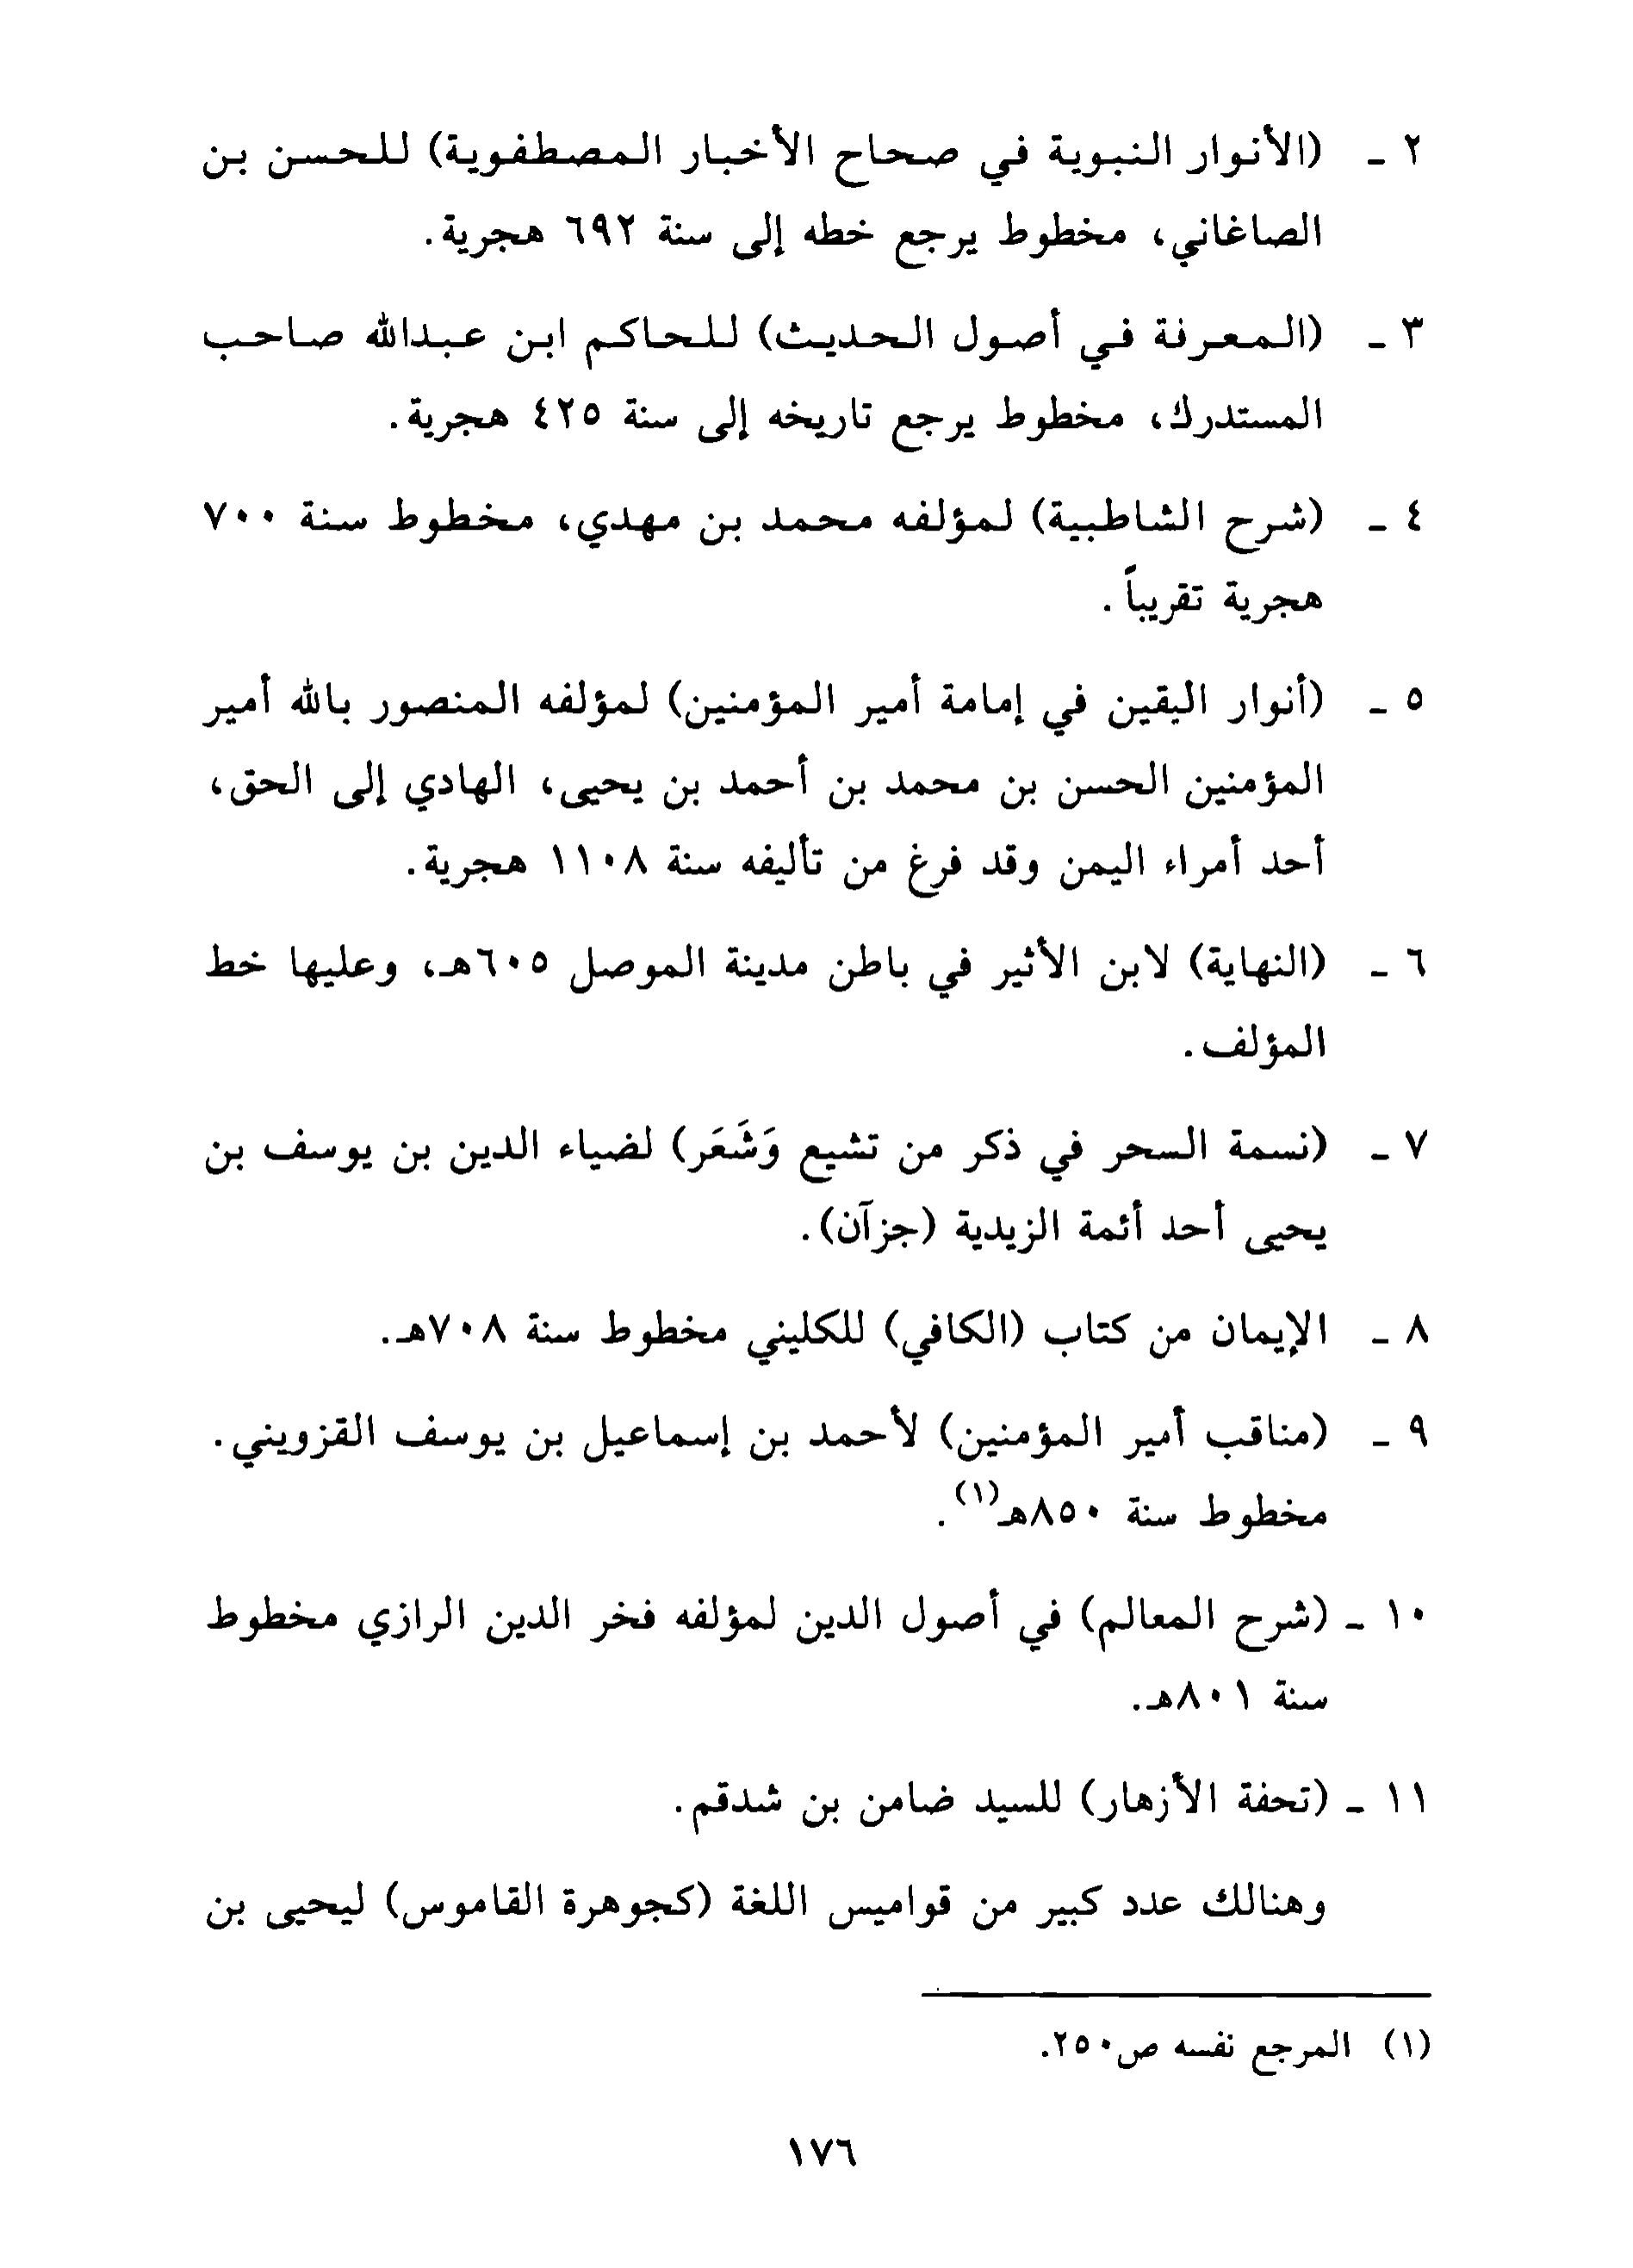 ٢ ـ (الأنوار النبوية في صحاح الأخبار المصطفوية) للحسن بن
الصاغاني، مخطوط يرجع خطه إلى سنة ٦٩٢ هجرية.
٣ ـ (المعرفة في أصول الحديث) للحاكم ابن عبدالله صاحب
المستدرك، مخطوط يرجع تاريخه إلى سنة ٤٢٥ هجرية.
٤ ـ (شرح الشاطبية) لمؤلفه محمد بن مهدي، مخطوط سنة ٧٠٠
هجرية تقريباً.
٥ ـ (أنوار اليقين في إمامة أمير المؤمنين) لمؤلفه المنصور بالله أمير
المؤمنين الحسن بن محمد بن أحمد بن يحيى، الهادي إلى الحق،
أحد أمراء اليمن وقد فرغ من تأليفه سنة ١١٠٨ هجرية.
٦ ـ (النهاية) لابن الأثير في باطن مدينة الموصل ٦٠٥هـ، وعليها خط
المؤلف.
٧ ـ (نسمة السحر في ذكر من تشيع وَشَعَر) لضياء الدين بن يوسف بن
يحيى أحد أئمة الزيدية (جزآن).
٨ ـ الإيمان من كتاب (الكافي) للكليني مخطوط سنة ٧٠٨هـ.
٩ ـ (مناقب أمير المؤمنين) لأحمد بن إسماعيل بن يوسف القزويني.
مخطوط سنة ٨٥٠هـ(١).
١٠ ـ (شرح المعالم) في أصول الدين لمؤلفه فخر الدين الرازي مخطوط
سنة ٨٠١هـ.
١١ ـ (تحفة الأزهار) للسيد ضامن بن شدقم.
وهنالك عدد كبير من قواميس اللغة (كجوهرة القاموس) ليحيى بن
(١) المرجع نفسه ص٢٥٠.
١٧٦